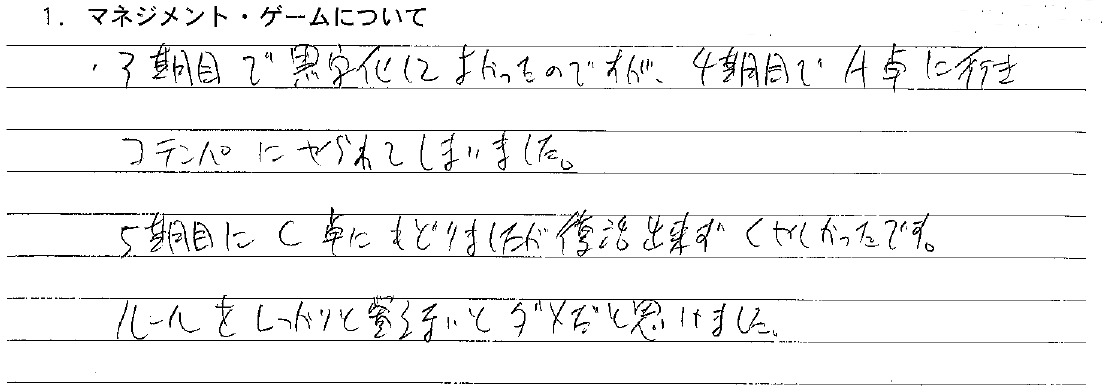 1. マネジメント・ゲームについて
・3期目で黒字化してよかったのですが、4期目でA卓に行き
コテンパにやられてしまいました。
5期目にC卓にもどりましたが復活出来ずくやしかったです。
ルールをしっかりと覚えないとダメだと思いました。